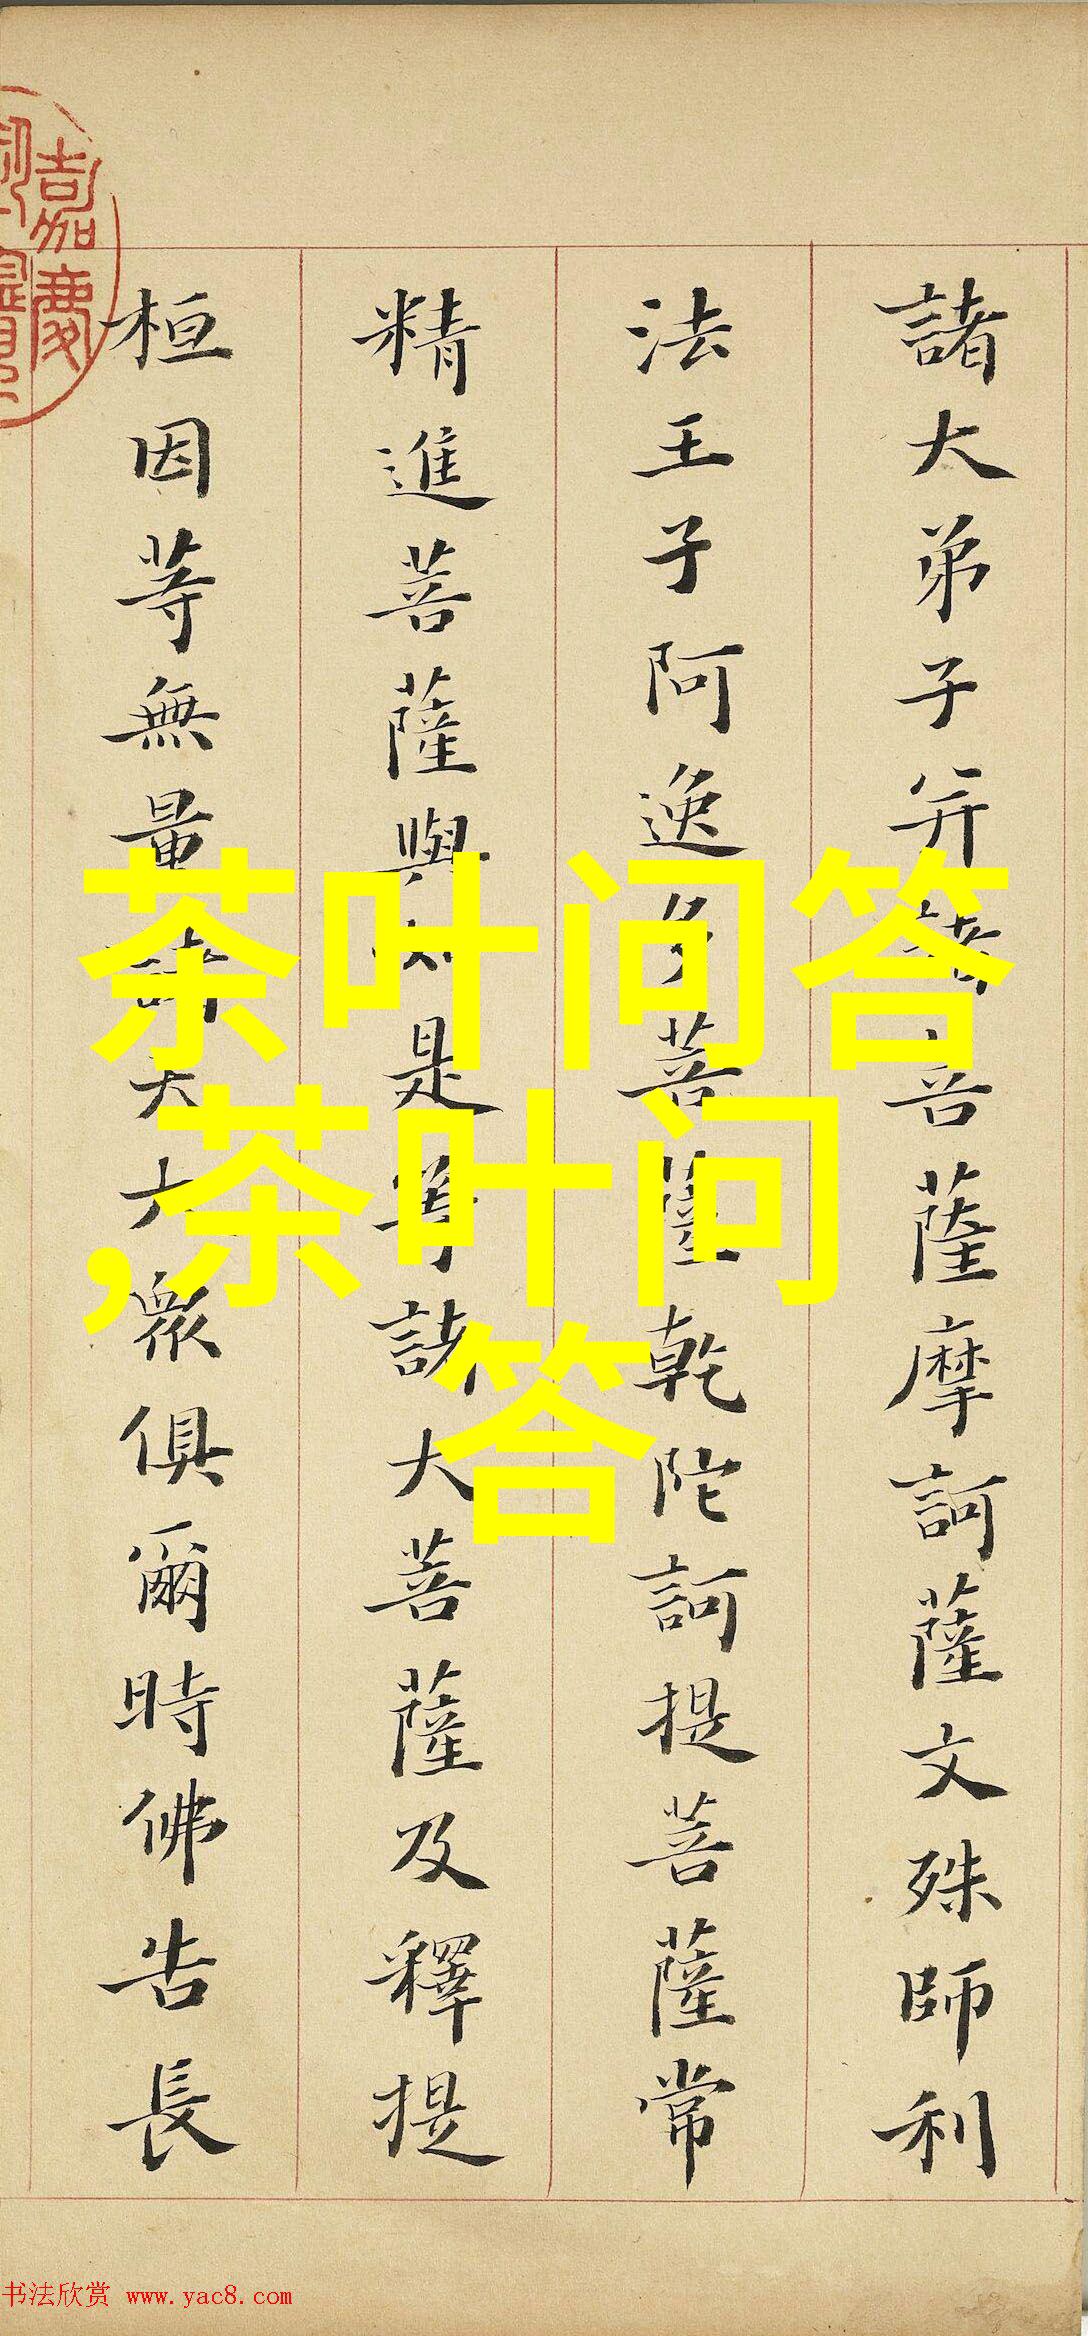 諸大弟子并諸菩薩摩訶薩文殊師利
法王子阿逸多菩薩乾陀訶提菩薩常
精進菩薩與如是等諸大菩薩及釋提
桓因等無量諸天大眾俱爾時佛告長
嘉慶
茶叶问答
,茶叶问
答
书法欣赏 www.yac8.com